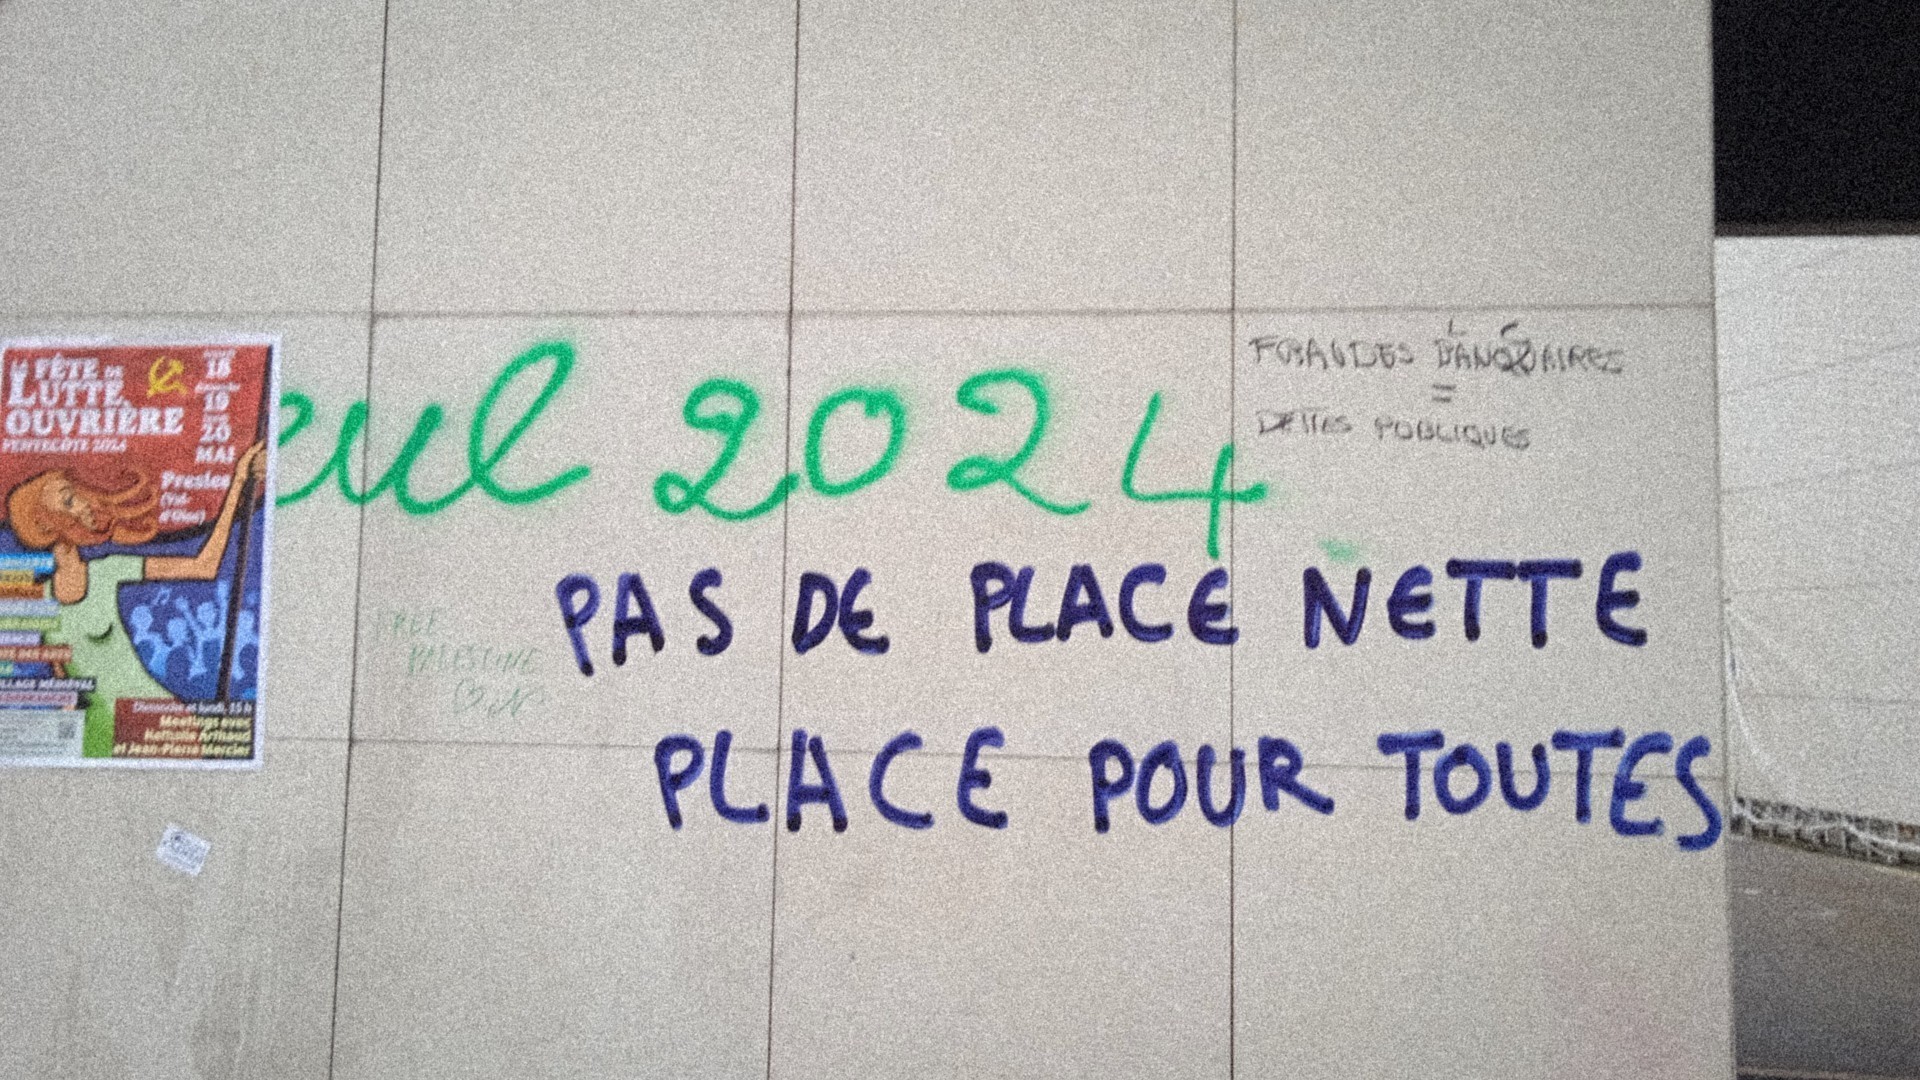 LA FÊTE DE
LUTTE
OUVRIÈRE
PENTECÔTE 2024
18
19
20
MAI
Presles
(Val
d'Oise)
Dimanche et lundi, 15 h
Meetings avec
Nathalie Arthaud
et Jean-Pierre Mercier
eul 2024
FRAUDES BANQUAIRES
=
DETTES PUBLIQUES
FREE
PALESTINE
PAS DE PLACE NETTE
PLACE POUR TOUTES